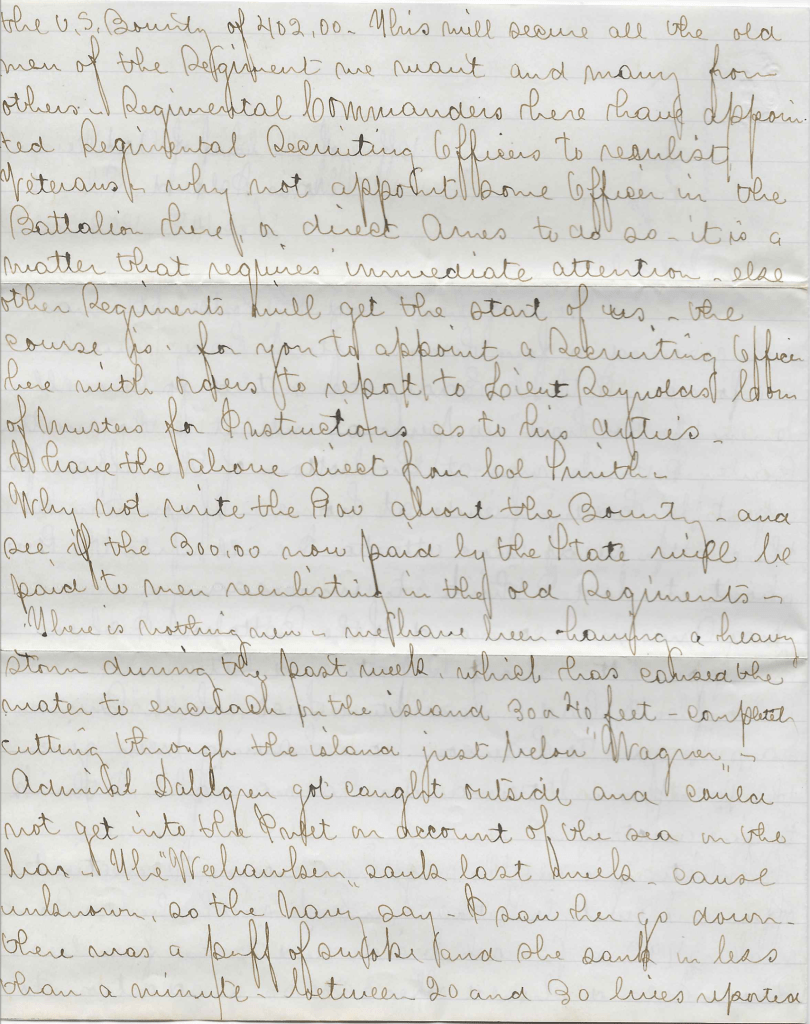 the U.S. Bounty of 402,00 - This will secure all the old
men of the Regiment we want and many from
others - Regimental Commanders here have appoin-
ted Regimental Recruiting Officers to reenlist
Veterans - why not appoint some Officer in the
Battalion here, or direct Ames to do so - it is a
matter that requires immediate attention - else
other Regiments will get the start of us - the
course is for you to appoint a Recruiting Officer
here with orders to report to Lieut Reynolds Com
of Musters for Instructions as to his duties -
I have the above direct from Col Smith -
Why not write the Gov about the Bounty - and
see if the 300,00 now paid by the State will be
paid to men reenlisting in the old Regiments -
There is nothing new - we have been having a heavy
storm during the past week, which has caused the
water to encroach on the island 30 or 40 feet - completely
cutting through the island just below "Wagner" -
Admiral Dahlgren got caught outside and could
not get into the Inlet on account of the sea on the
bar - The "Weehawken" sank last week - cause
unknown, so the Navy say - I saw her go down -
there was a puff of smoke and she sank in less
than a minute - between 20 and 30 lives reported